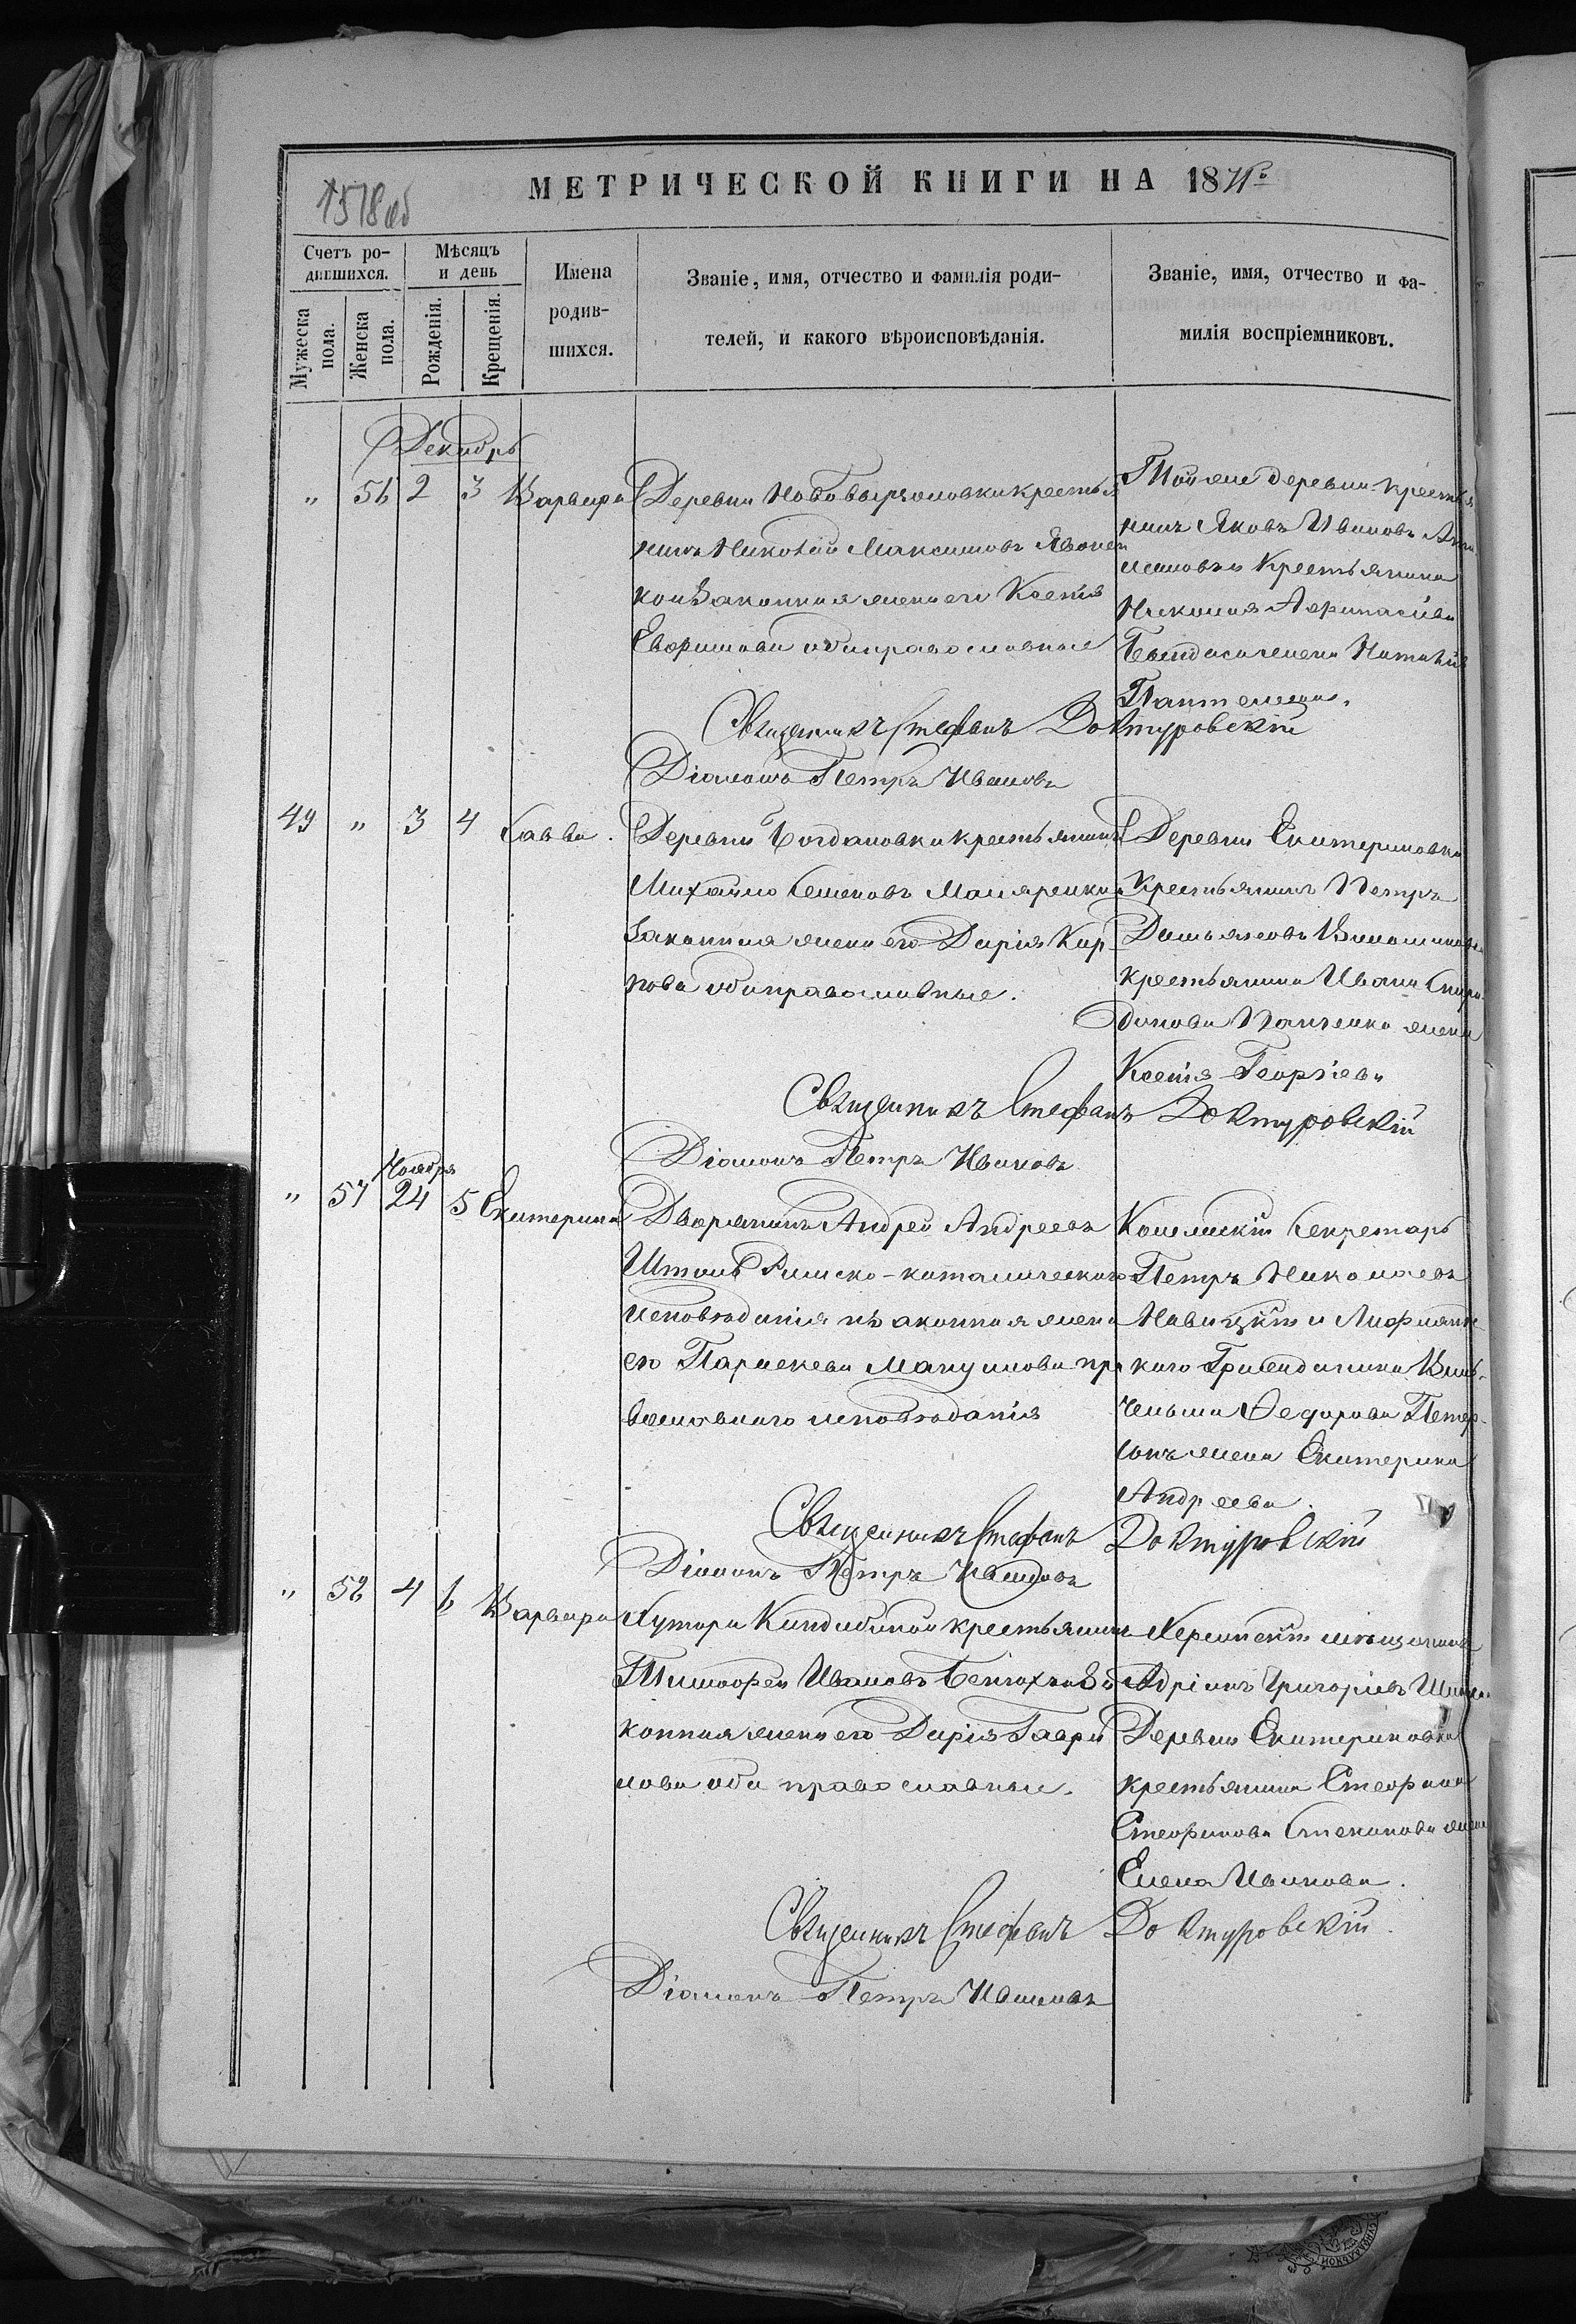 1518об
МЕТРИЧЕСКОЙ КНИГИ НА 1871го
Счетъ ро-
дившихся.
Мѣсяцъ
и день
Имена
родив-
шихся.
Званіе, имя, отчество и фамилія роди-
телей, и какого вѣроисповѣданія.
Званіе, имя, отчество и фа-
милія воспріемниковъ.
Мужеска
пола.
Женска
пола.
Рожденія.
Крещенія.
Декабрь
" 56 2 3 Варвара
Деревни крестья
нинъ Николай Максимовъ
законная жена его Ксенія
оба православные
Той же деревни крестья
нинъ Яковъ Ивановъ
крестьянина
Николая Афанасіева
жена Наталія
Священникъ Стефанъ Доктуровскій
Діаконъ Петръ Ивановъ
49 " 3 4 Савва.
Деревни Богдановки крестьянинъ
Михайло Семеновъ Маляренко
законная жена его Дарія Кар
пова оба православные.
Деревни Екатериновки
крестьянинъ Петръ
Демьяновъ
крестьянина Ивана Спири
донова Панченка жена
Ксенія Георгіева
Священникъ Стефанъ Доктуровскій
Діаконъ Петръ Ивановъ
Ноября
" 57 24 5 Екатерина
Дворянинъ Андрей Андреевъ
Римско-католическаго
исповѣданія законная жена
его Параскева пра
вославнаго исповѣданія
секретарь
Петръ Николаевъ
Навицкій и Лифлянд-
каго гражданина Виль-
гельма Федорова Петер-
сонъ жена Екатерина
Андреева.
Священникъ Стефанъ Доктуровскій
Діаконъ Петръ Ивановъ
" 58 4 6 Варвара
Хутора крестьянинъ
Тимофей Ивановъ за
конная жена его Дарія Гаври
лова оба православные.
Херсонскій мѣщанинъ
Адріанъ Григорьевъ
Деревни Екатериновки
крестьянина Стефана
Стефанова Степанова жена
Елена Иванова.
Священникъ Стефанъ Доктуровскій.
Діаконъ Петръ Ивановъ